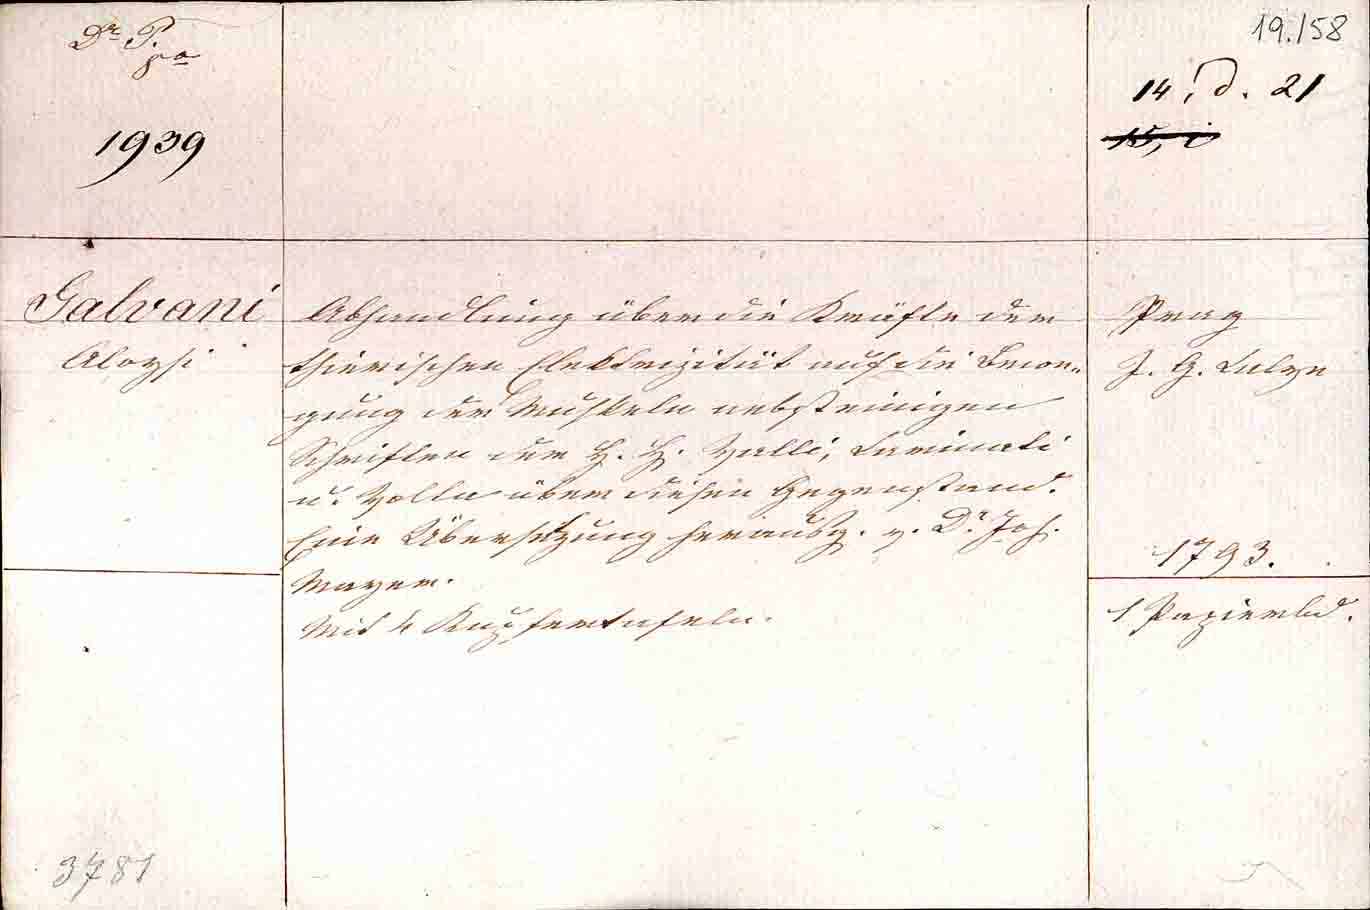 Dr P.
19./58
14, d. 21
1939
15, i
Galvani
Aloysi
Abhandlung über die Kräfte der
thierischen Elektrizität auf die Bewe„
gung der Muskeln nebst einigen
Schriften der H. H. Valli, Carminati
u. Volta über diesen Gegenstand.
Eine Übersetzung herausg. v. Dr. Joh.
Mayer.
Mit 4 Kupfertafeln.
Prag
J. G. Calve
1793.
1 Papierbd.
3781